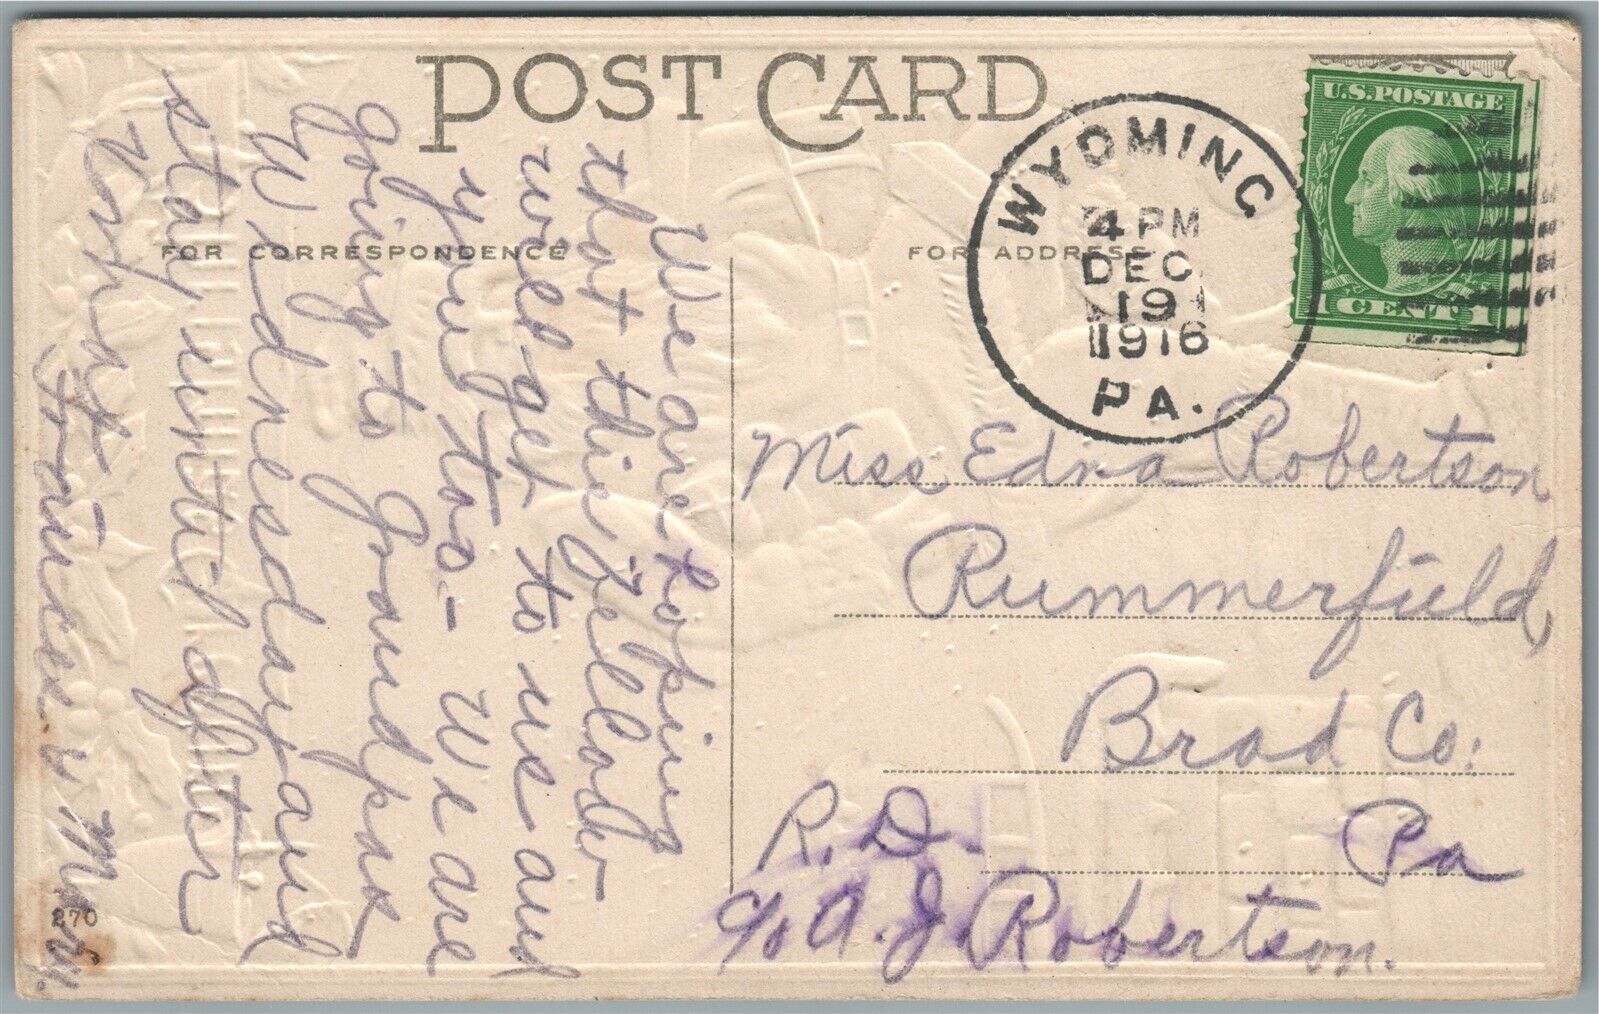 POST CARD
FOR CORRESPONDENCE
FOR ADDRESS
WYOMING
4 PM
DEC
19
1916
PA.
U.S. POSTAGE
1 CENT 1
Miss Edna Robertson
Rummerfield,
Brad Co:
Pa
R. D.
c/o A. J. Robertson.
We are hoping
that this
will get to us and
you too - We are
going to Grandpas
Wednesday and
stay until after
Frances & Mary.
270